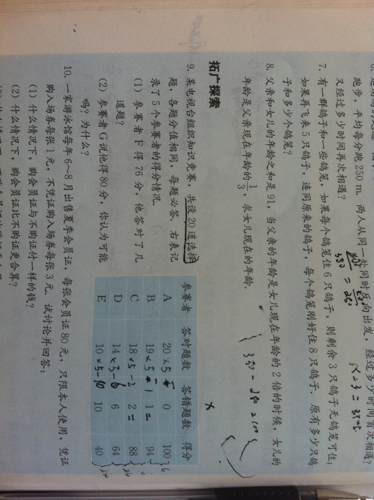 跑步，平均每分跑250 m，两人从同一处同时反向出发，经过多少时间首次相遇？
又经过多少时间再次相遇？
7. 有一群鸽子和一些鸽笼，如果每个鸽笼住6只鸽子，则剩余3只鸽子无鸽笼可住；
如果再飞来5只鸽子，连同原来的鸽子，每个鸽笼刚好住8只鸽子. 原有多少只鸽
子和多少个鸽笼？
8. 父亲和女儿的年龄之和是91，当父亲的年龄是女儿现在年龄的2倍的时候，女儿的
年龄是父亲现在年龄的1/3，求女儿现在的年龄.
拓广探索
9. 某电视台组织知识竞赛，共设20道选择
题，各题分值相同，每题必答. 右表记
录了5个参赛者的得分情况.
(1) 参赛者F得76分，他答对了几
道题？
(2) 参赛者G说他得80分，你认为可能
吗？为什么？
参赛者 答对题数 答错题数 得分
A 20 0 100
B 19 1 94
C 18 2 88
D 14 6 64
E 10 10 40
10. 一家游泳馆每年6～8月出售夏季会员证，每张会员证80元，只限本人使用，凭证
购入场券每张1元，不凭证购入场券每张3元. 试讨论并回答：
(1) 什么情况下，购会员证与不购证付一样的钱？
(2) 什么情况下，购会员证比不购证更合算？